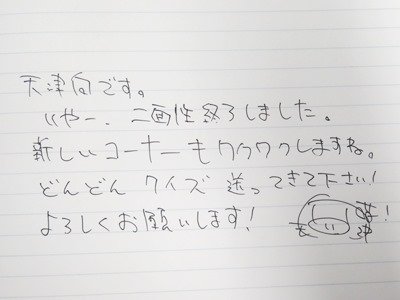 天津向です。
いやー、二面性終了しました。
新しいコーナーもワクワクしますね。
どんどん クイズ 送ってきて下さい!
よろしくお願いします!